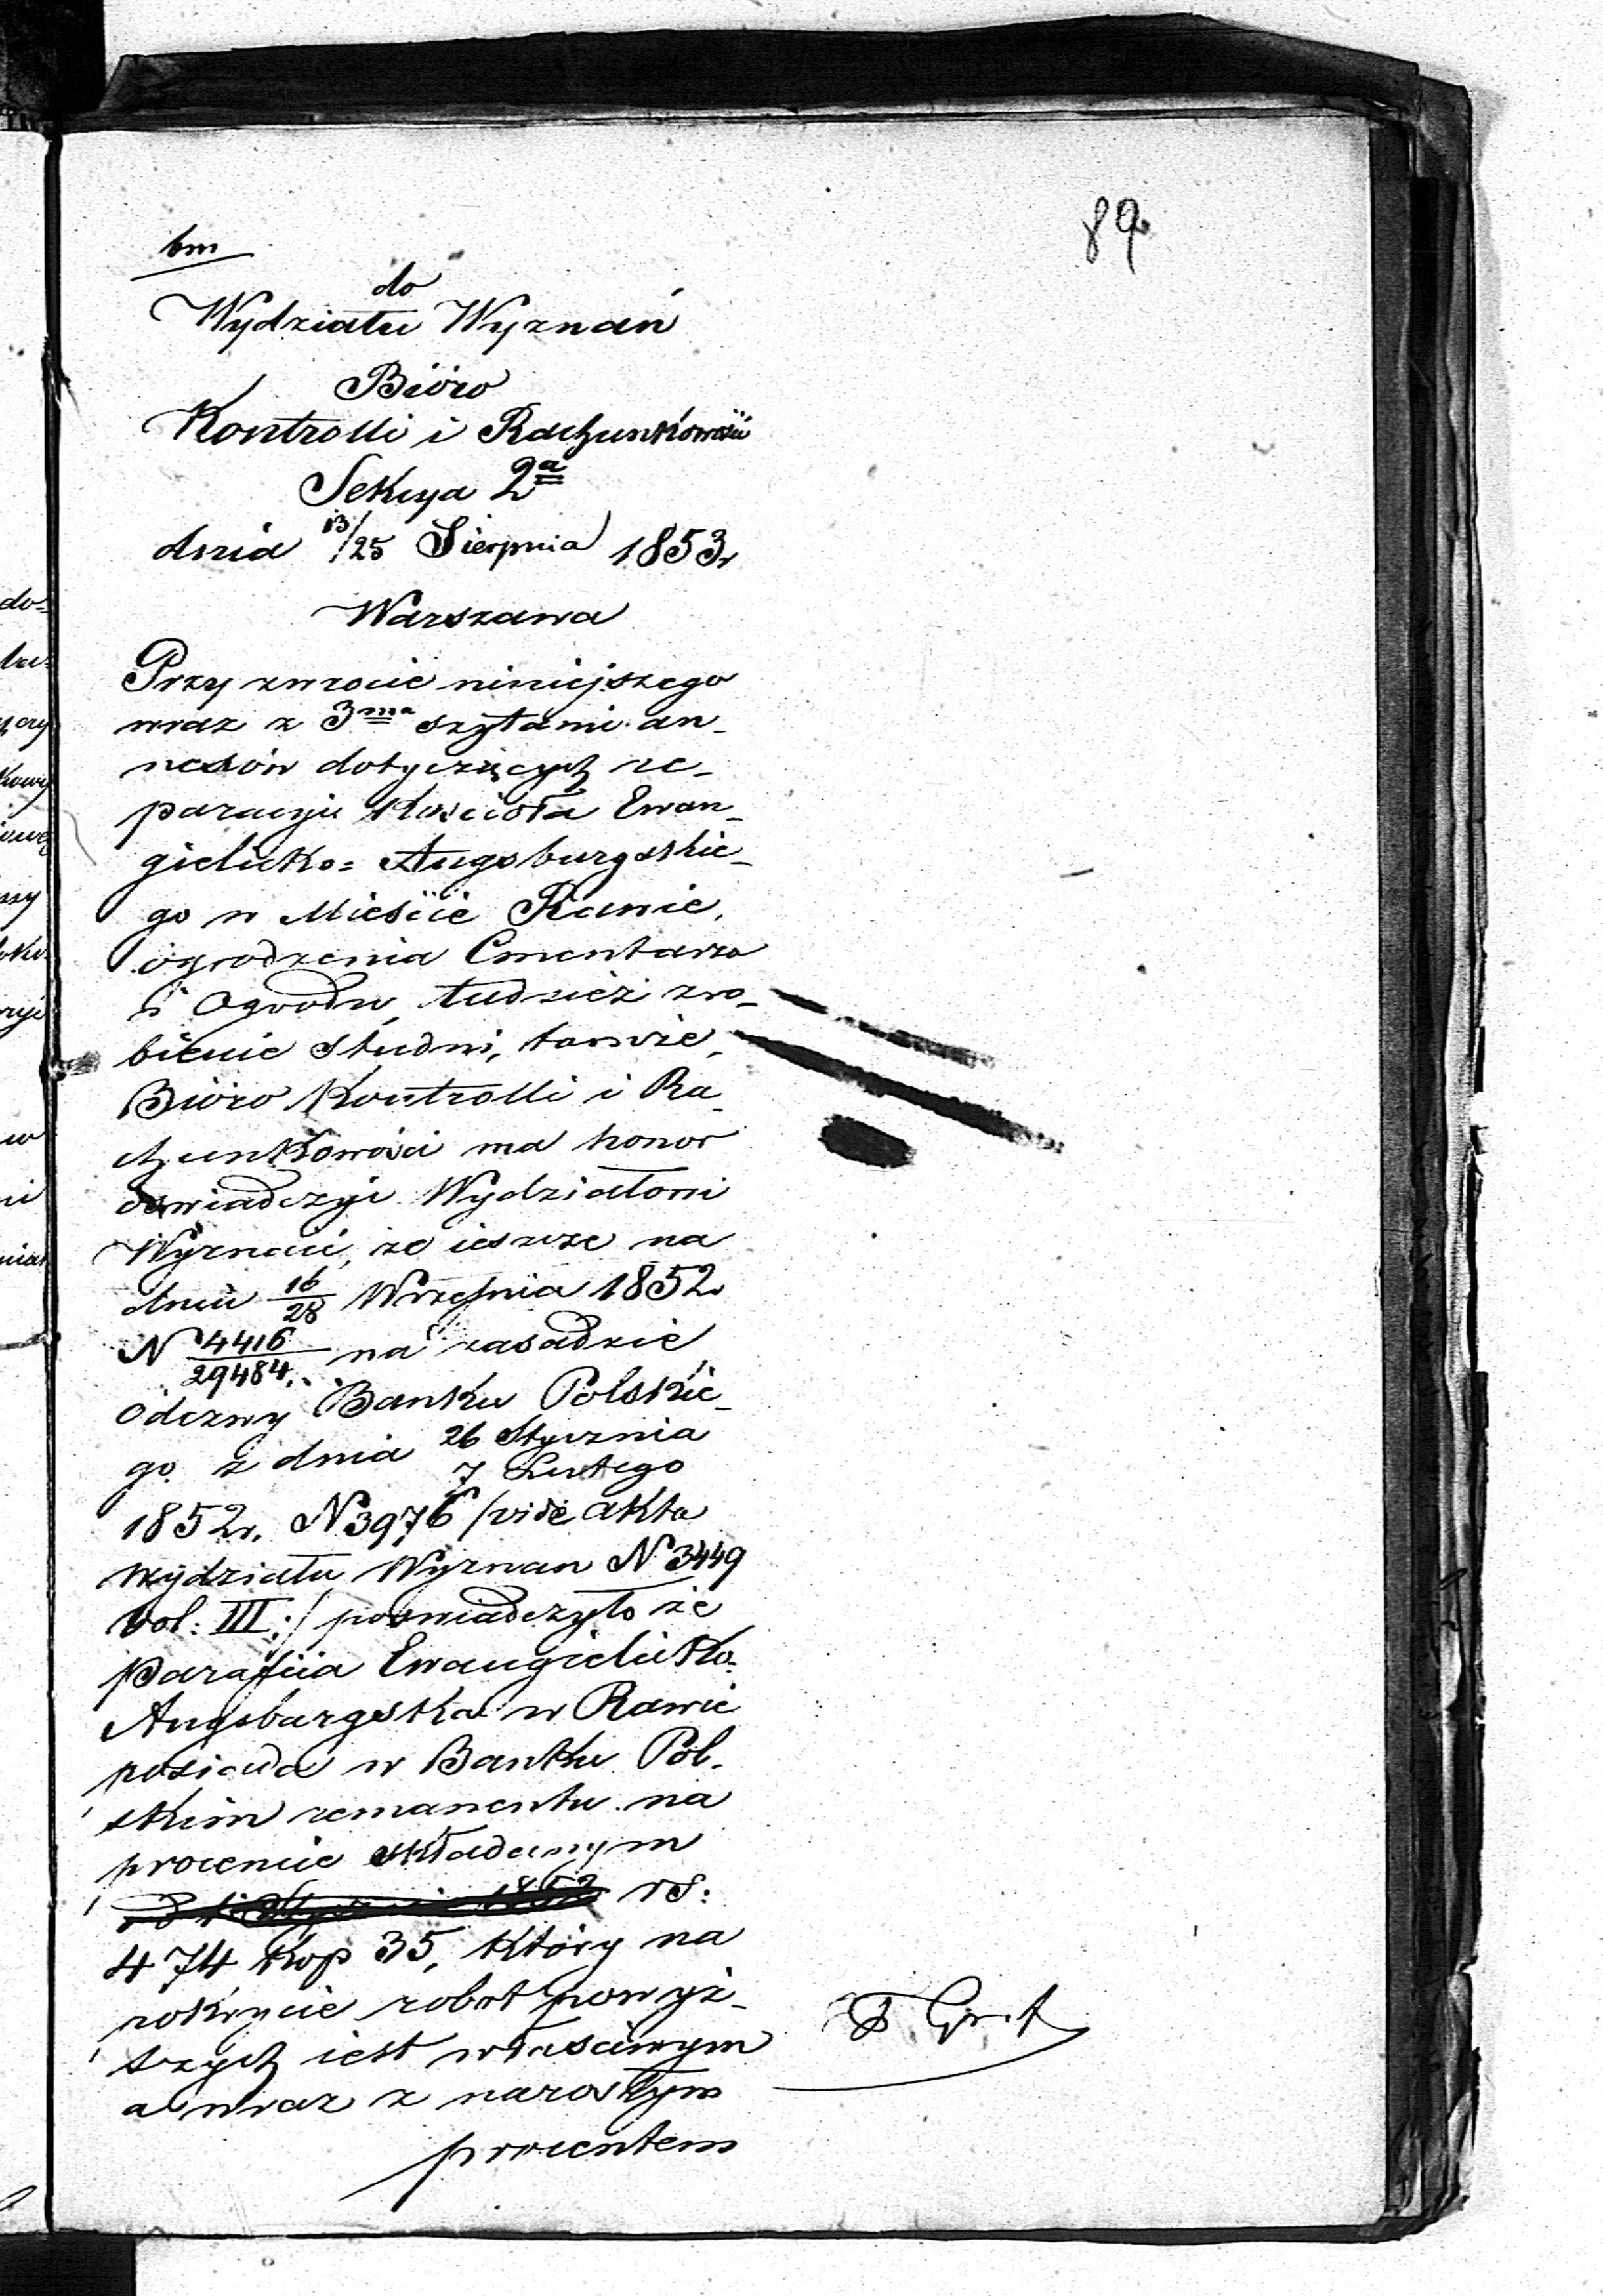 89
bm
do
Wydziału Wyznań
Bióro
Kontrolli i Rachunkowości
Sekcya 2a
dnia 13/25 Sierpnia 1853r
Warszawa
Przy zwrocie niniejszego
wraz z 3ma szytami an_
nexów dotyczących re_
paracyi Kościoła Ewan_
gielicko= Augsburgskie_
go w Mieście Rawie,
ogrodzenia Cmentarza
i Ogrodu, tudzież zro_
bienie studni, tamże,
Bióro Kontrolli i Ra_
chunkowości ma honor
oświadczyć Wydziałowi
Wyznań, że ieszcze na
dniu 16/28 Września 1852
N 4416/29484. na zasadzie
Odezwy Banku Polskie_
go z dnia 26 Stycznia
7 Lutego
1852r. N 3976 /vide akta
wydziału Wyznan N 3449
Vol: III :/ poswiadczyło że
Parafiia Ewangielicko_
Augsburgska w Rawie
posiada w Banku Pol_
skim remanentu na
procencie składanym
1852 rs:
474 kop 35, który na
pokrycie robot powyż_
szych iest właściwym
a wraz z narosłym
procentem